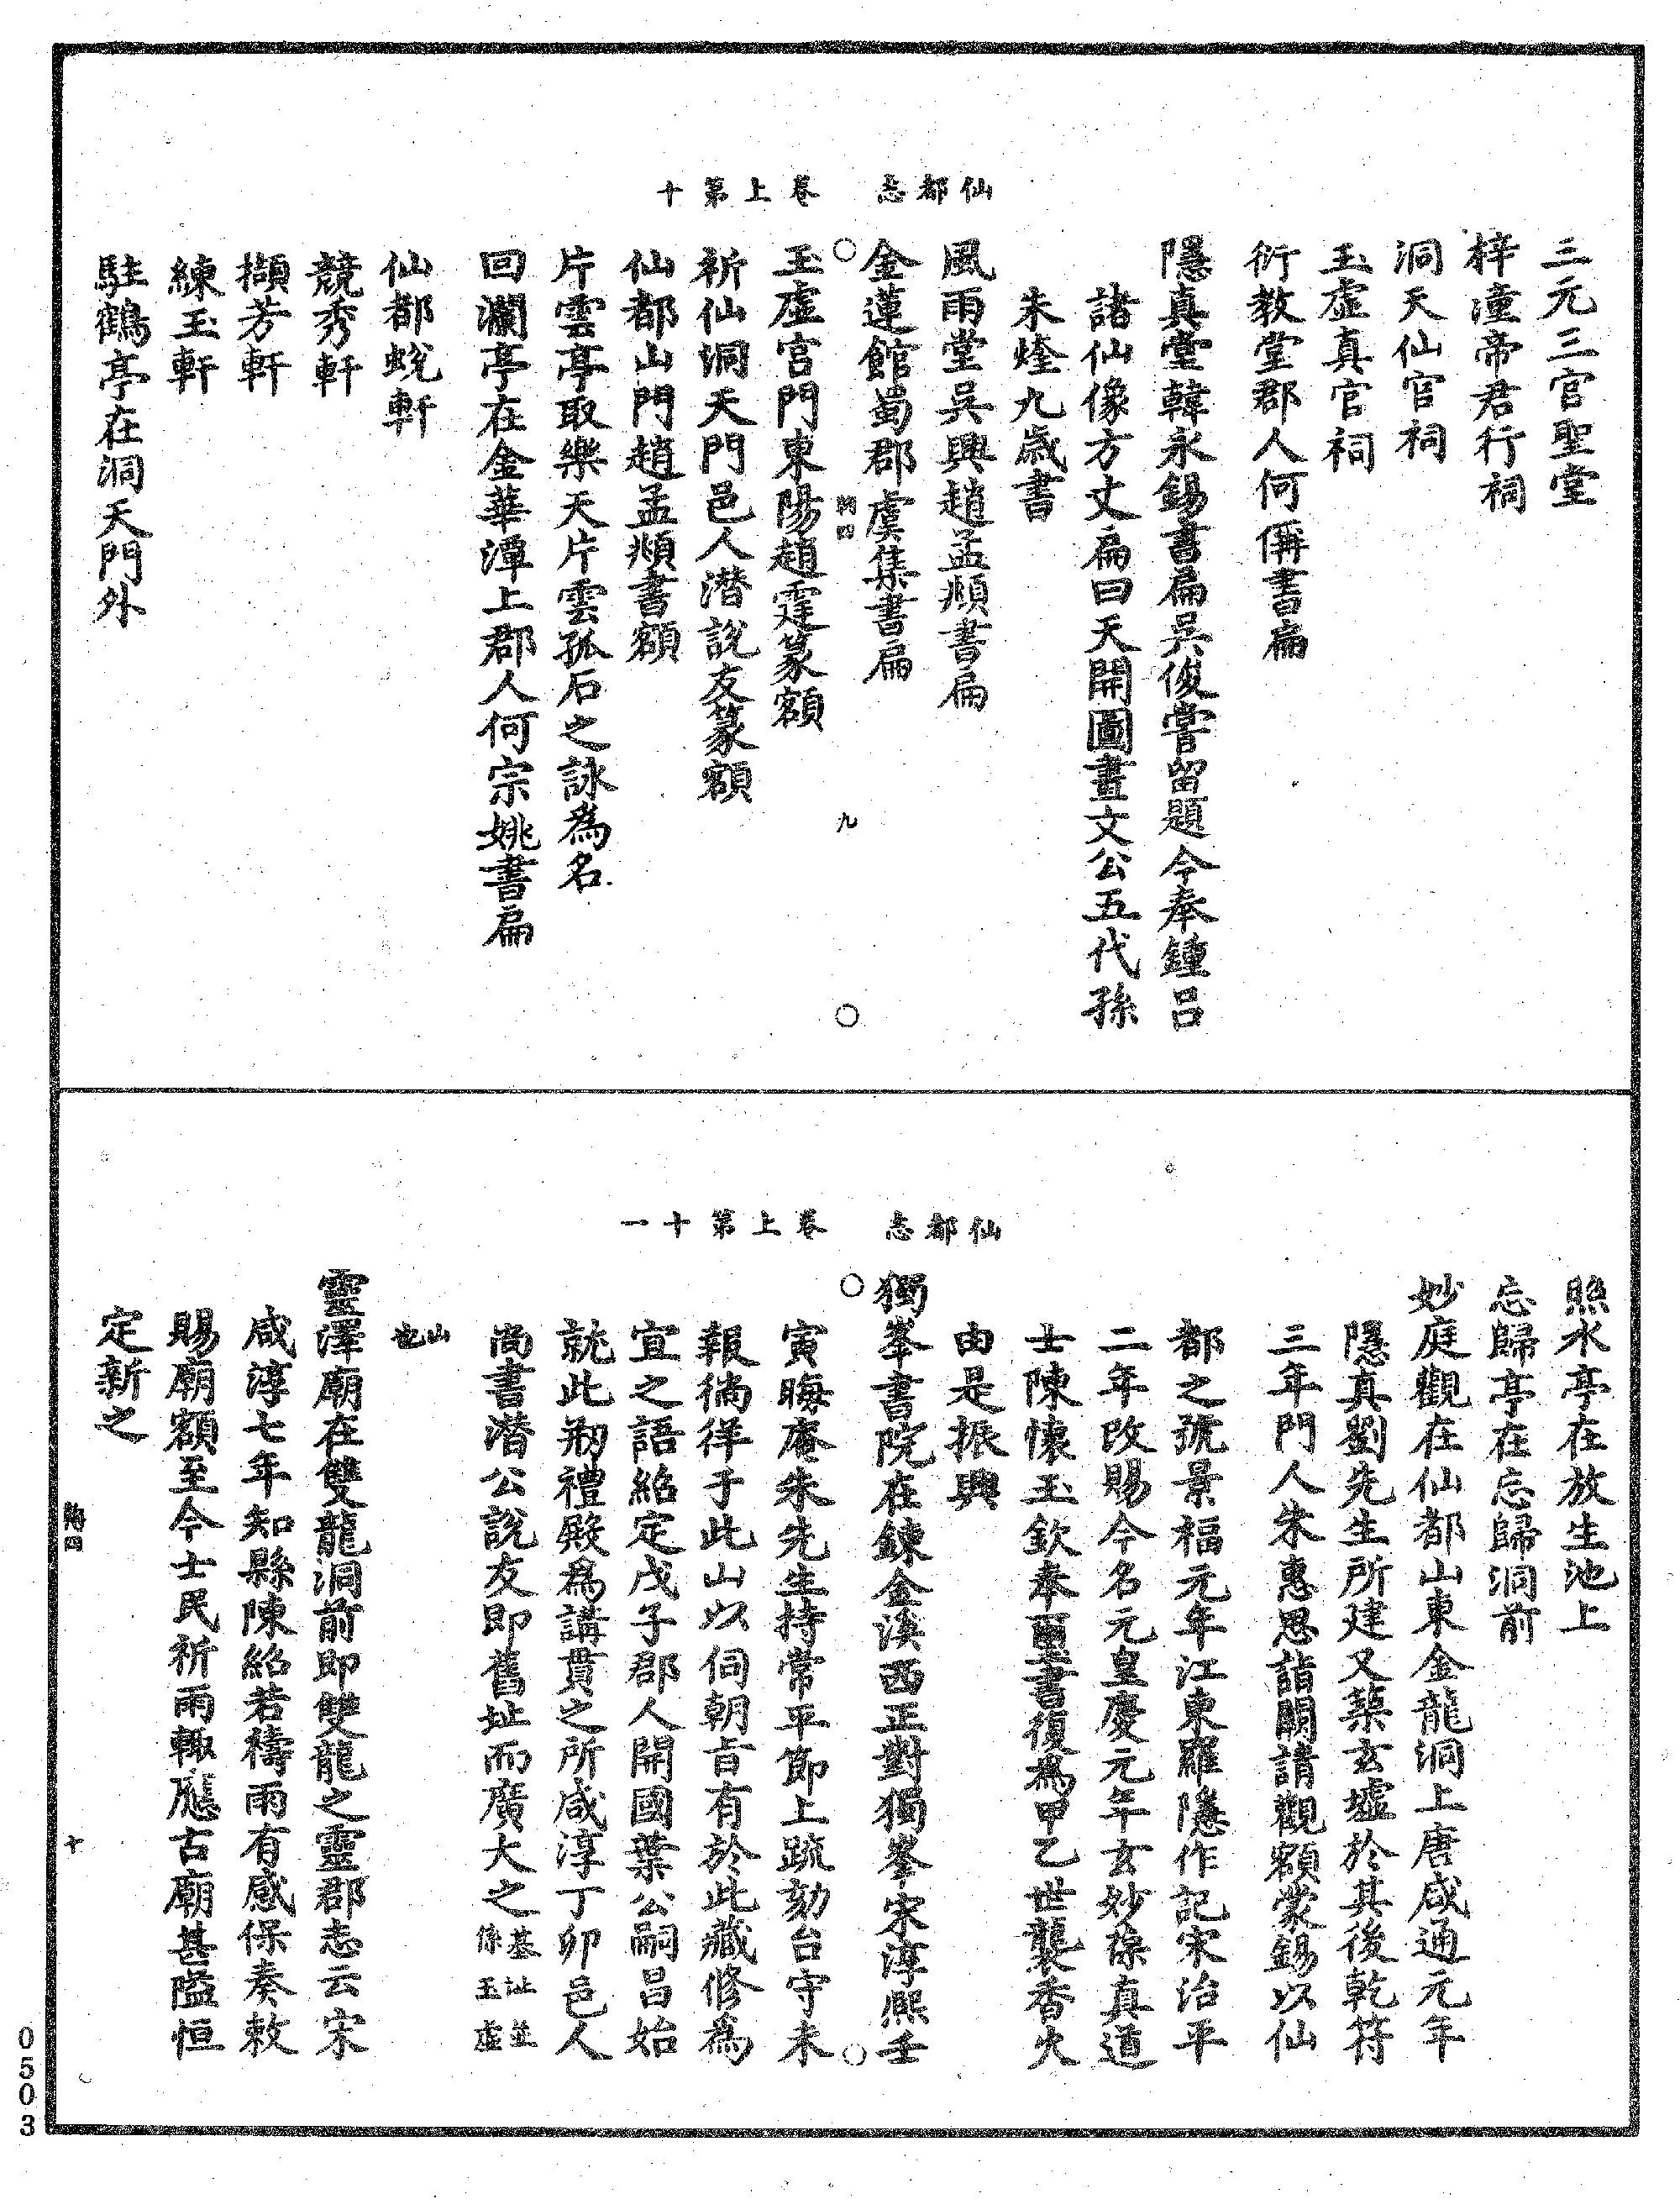 仙都志　卷上第十
三元三官聖堂
梓潼帝君行祠
洞天仙官祠
玉虛真官祠
衍教堂郡人何偁書扁
隱真堂韓永錫書扁吳俊嘗留題今奉鍾呂
諸仙像方丈扁曰天開圖畫文公五代孫
朱煃九歲書
風雨堂吳興趙孟頫書扁
金蓮館蜀郡虞集書扁
九
玉虛宮門東陽趙霆篆額
祈仙洞天門邑人潛說友篆額
仙都山門趙孟頫書額
片雲亭取樂天片雲孤石之詠為名
回瀾亭在金華潭上郡人何宗姚書扁
仙都蛻軒
競秀軒
擷芳軒
練玉軒
駐鶴亭在洞天門外
仙都志　卷上第十一
照水亭在放生池上
忘歸亭在忘歸洞前
妙庭觀在仙都山東金龍洞上唐咸通元年
隱真劉先生所建又築玄墟於其後乾符
三年門人朱惠思詣闕請觀額蒙錫以仙
都之號景福元年江東羅隱作記宋治平
二年改賜今名元皇慶元年玄妙葆真道
士陳懷玉欽奉璽書復為甲乙世襲香火
由是振興
獨峯書院在鍊金溪西正對獨峯宋淳熙壬
寅晦庵朱先生持常平節上疏劾台守未
報徜徉于此山以伺朝旨有於此藏修為
宜之語紹定戊子郡人開國葉公嗣昌始
就此剏禮殿為講貫之所咸淳丁卯邑人
尚書潛公說友即舊址而廣大之基址並係玉虛
山也
靈澤廟在雙龍洞前即雙龍之靈郡志云宋
咸淳七年知縣陳紹若禱雨有感保奏敕
賜廟額至今士民祈雨輒應古廟甚隘恒
定新之
十
0503